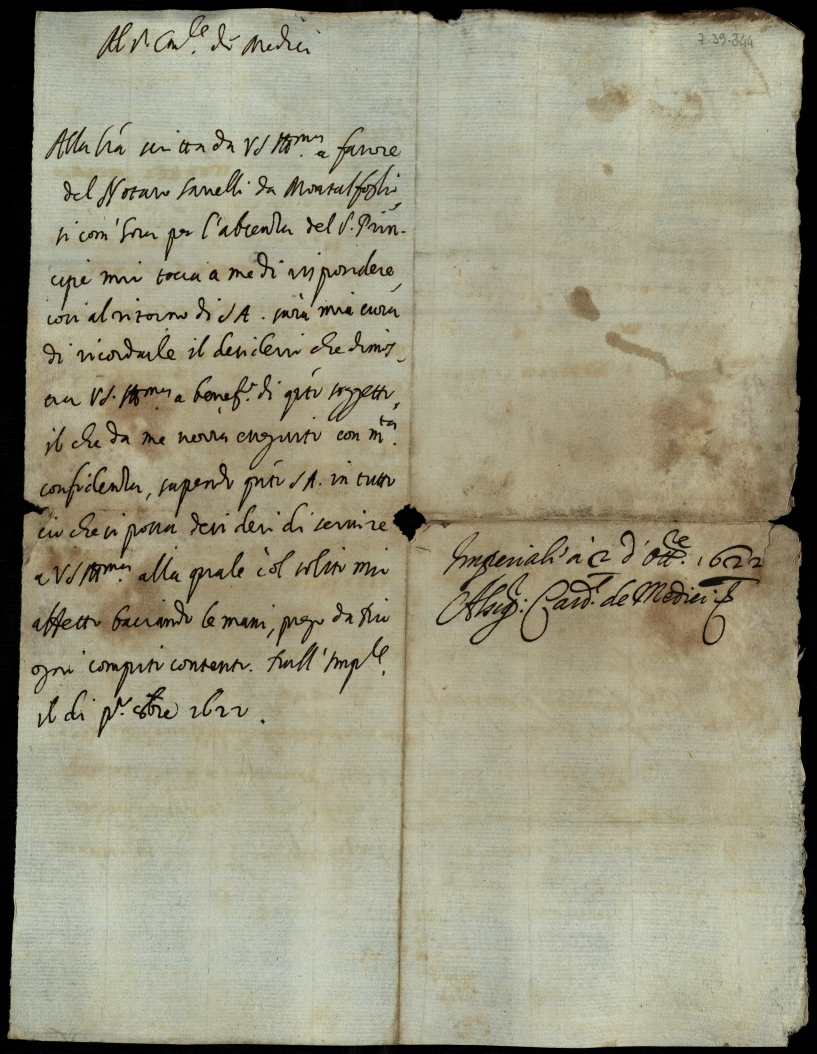 Al S.r Car.le de Medici
7-39-344
Alla l'ra scritta da VS Ill.ma a favore
del Notaro Savelli da Montalfoglio
si com' hora per l'absenza del S. Prin-
cipe mio tocca a me di rispondere,
così al ritorno di SA. sarà mia cura
di ricordarle il desiderio che dimos-
tra VS. Ill.ma a benef.o di q'sto soggetto,
il che da me verrà eseguito con m.ta
confidenza, sapendo q'sto SA. in tutto
ciò che si possa desideri di servire
a VS Ill.ma alla quale col solito mio
affetto baciando le mani, prego da Dio
ogni compiuto contento. Dall' Imp.le
il di p.o 8bre 1622.
Imperiali à 2 d' Ott.re 1622
Al Sig.r Card. de Medici